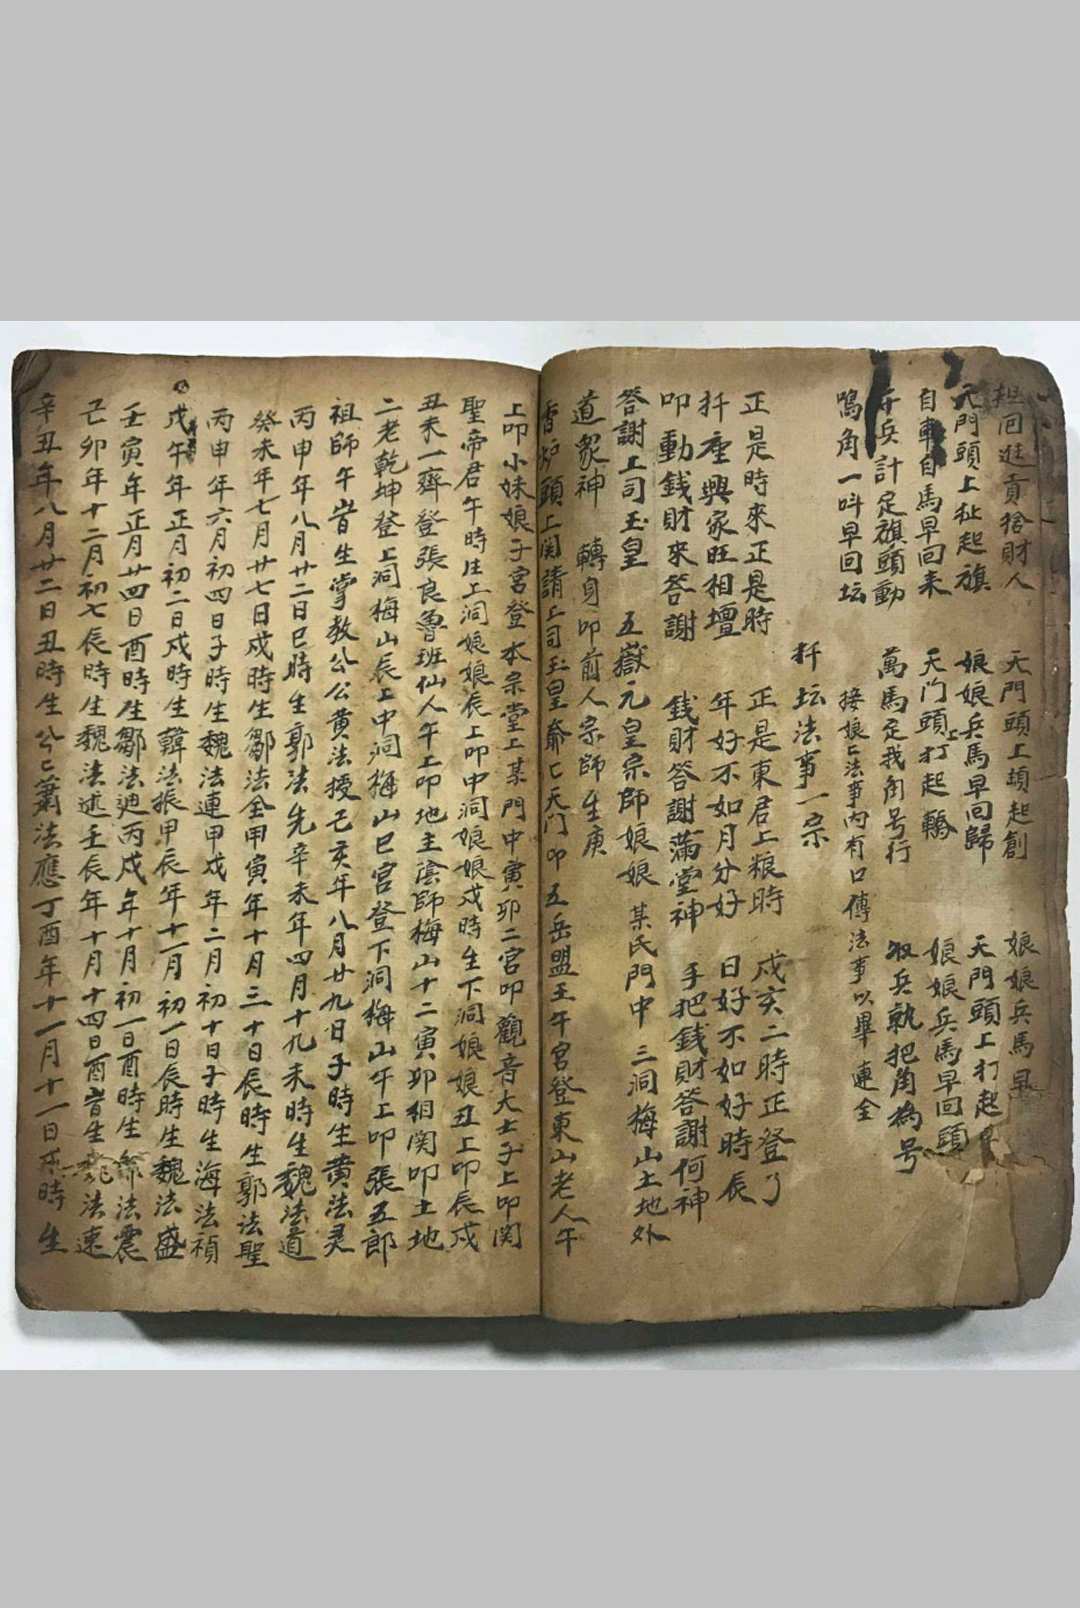 回 貢捨財人 天門頭上 起創 娘娘兵馬早
天門頭上扯起旗 娘娘兵馬早回歸 天門頭上打起
自車自馬早回来 天门頭上打起轎 娘娘兵馬早回頭
千兵計足旗頭動 萬馬足我角号行 收兵執把角為号
鳴角一呌早回坛 接娘〻法事内有口傳法事以畢 連全
扦坛法事一宗
正是時來正是時 正是東君上粮時 戍亥二時正登了
扦座興家旺相壇 年好不如月分好 日好不如好時辰
叩動錢財來答謝 錢財答謝滿堂神 手把錢財答謝何神
答謝上司玉皇 五嶽元皇宗師娘娘 某氏門中 三洞梅山土地外
道眾神 轉身叩前人宗師生庚
香炉頭上関請上司玉皇爺〻天门叩五岳盟王午宮登東山老人午
上叩小妹娘子宮登本宗堂上某門中寅卯二宮叩觀音大士子上叩関
聖帝君午時生上洞娘娘辰上叩中洞娘娘戍時生下洞娘娘丑上叩辰戍
丑未一齊登張良魯班仙人午上叩地主陰師梅山十二寅卯相関叩土地
二老乾坤登上洞梅山辰上中洞梅山巳宮登下洞梅山午上叩張五郎
祖師午時生掌教公公黄法授己亥年八月廿九日子時生黄法灵
丙申年八月廿二日巳時生郭法先辛未年四月十九未時生魏法道
癸未年七月廿七日戍時生鄒法全甲寅年十月三十日辰時生郭法聖
丙申年六月初四日子時生魏法連甲戍年二月初十日子時生海法禎
戊午年正月初二日戍時生韓法振甲辰年十一月初一日辰時生魏法盛
壬寅年正月廿四日酉時生鄒法廸丙戍年十月初一日酉時生 法震
己卯年十二月初七辰時生魏法述壬辰年十月十四日酉時生 法速
辛丑年八月廿二日丑時生公〻蕭法應丁酉年十一月十一日戍時生